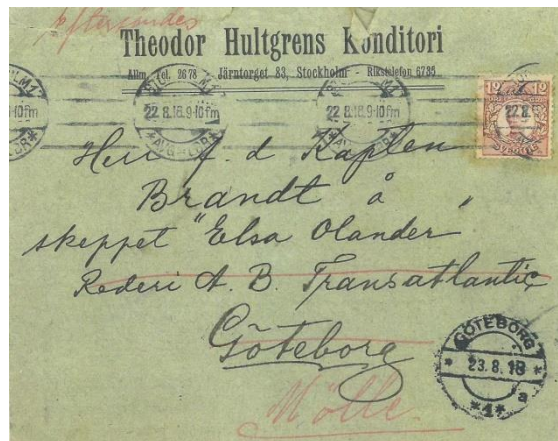 Eftersändes
Theodor Hultgrens Konditori
Allm. Tel. 2678 Järntorget 83, Stockholm - Rikstelefon 6735
22.8.18.9-10fm
22.8.18.9-10fm
12 12
SVERIGE
Herr f. d Kapten
Brandt å
skeppet "Elsa Olander"
Rederi A. B. Transatlantic
Göteborg
GÖTEBORG
23.8.18
*1* a
Mölle